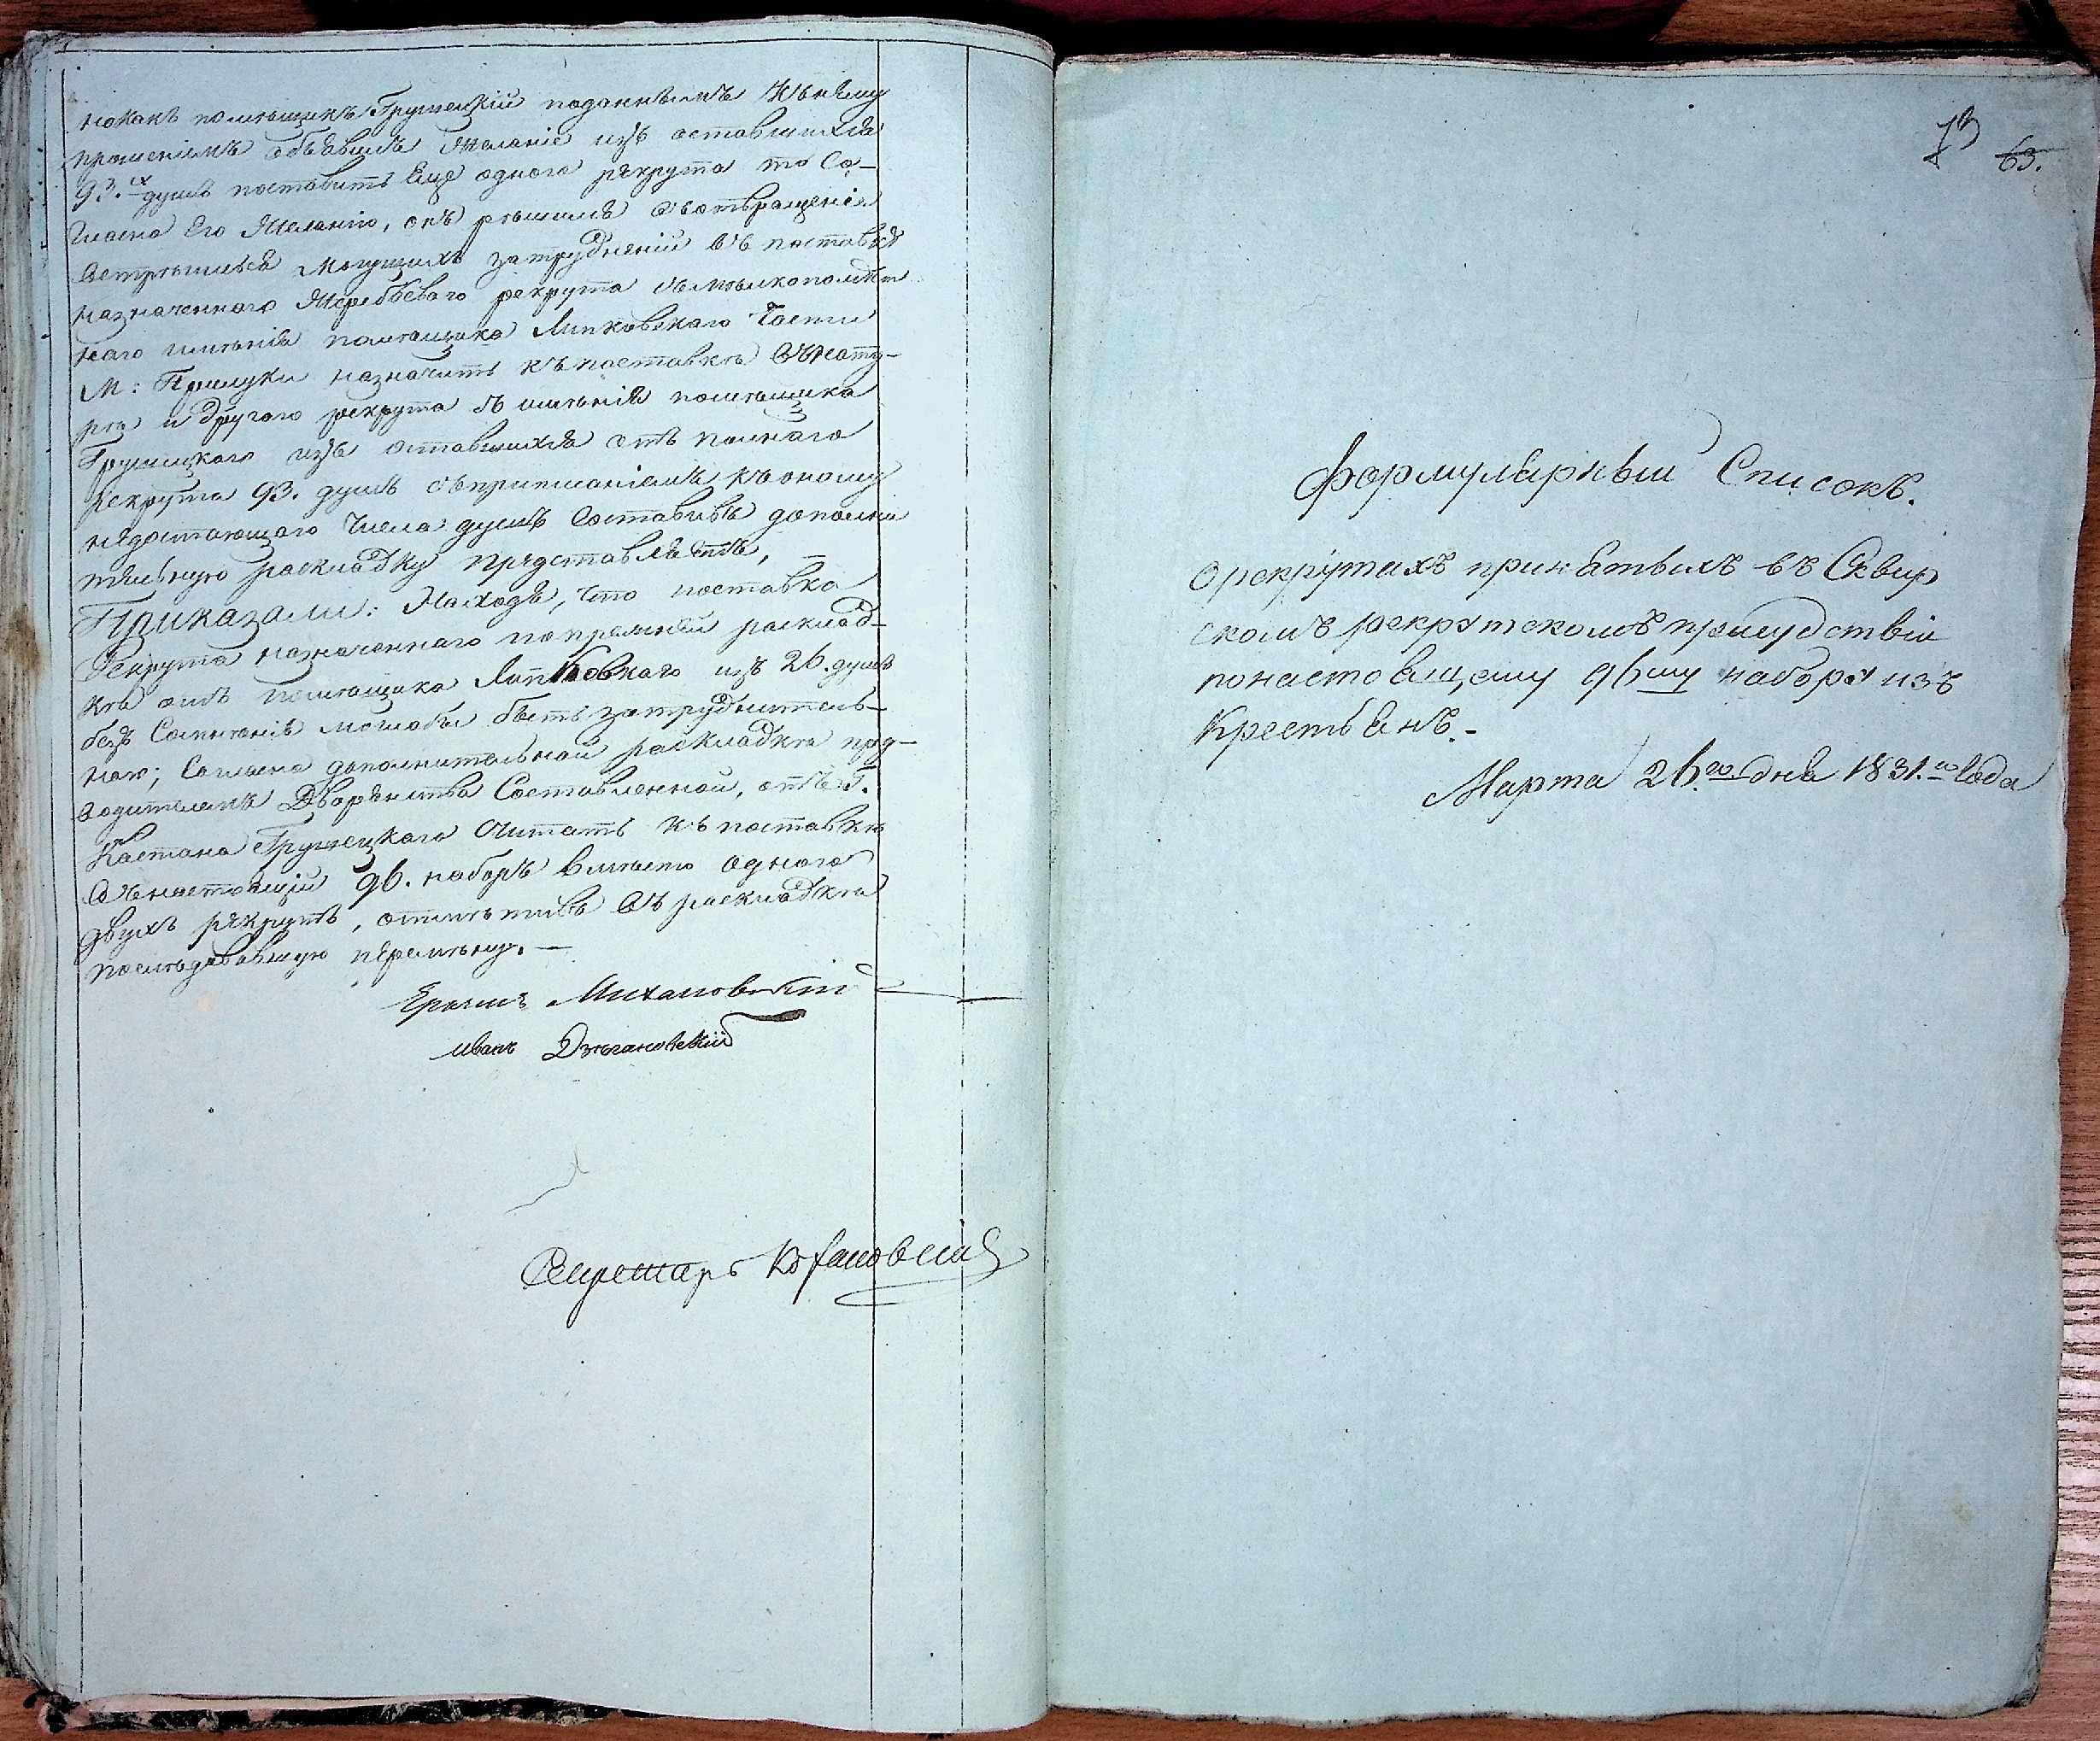 но какъ помѣщикъ Грушецкій поданнымъ къ нему
прошеніемъ объявилъ желаніе изъ оставшихся
93.хъ душъ поставить Еще одного рекрута то Со-
гласно Его Желанію, онъ рѣшилъ въ отвращеніе
встрѣтиться Могущихъ затрудненій въ поставкѣ
назначенного Жеребьеваго рекрута съ мѣлкопомѣст
наго имѣнія помѣщика Липковскаго Части
М: Прилуки назначить къ поставкѣ въ нату-
рѣ и другого рекрута съ имѣнія помѣщика
Грушецкаго изъ оставшихся отъ полнаго
рекрута 93. душъ съ приписаніемъ къ оному
недостающаго числа душъ Составивъ дополни
тельную раскладку представляетъ, —
Приказали: Находя, что поставка
Рекрута назначеннаго по прежней расклад-
кѣ отъ помѣщика Липковскаго изъ 26. душъ
безъ Сомнѣнія моглабы быть затруднитель-
ною; Согласно дополнительной раскладкѣ пред-
водителемъ Дворянства Составленной, отъ Г.
Каетана Грушецкаго Считать къ поставкѣ
въ настоящій 96. наборъ вмѣсто одного
двухъ рекрутъ, отмѣтивъ въ раскладкѣ
послѣдовавшую перемѣну. —
Михаловскій
Иванъ
Секретарь
73 63.
Формулярный Списокъ.
О рекрутахъ принятыхъ въ Сквир
скомъ рекрутскомъ присудствіи
по настоящему 96му набору изъ
Крестьянъ.-
Марта 26.го дня 1831.го Года